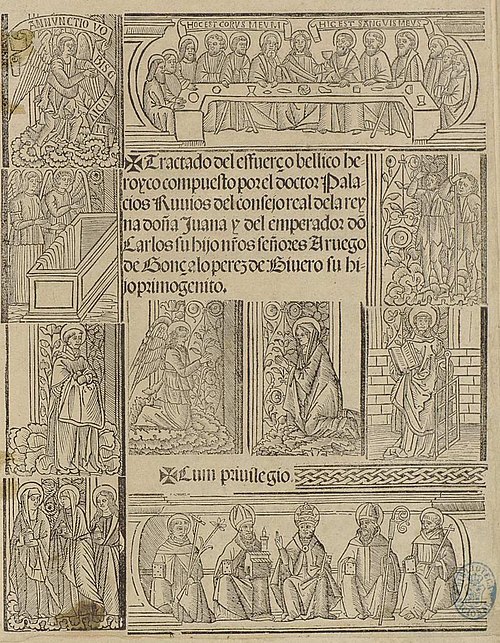 ANNUNCTIO VO
BIS G
HOC EST CORPVS MEVM
HIC EST SANGVIS MEVS
✠ Tractado del effuerço bellico he
royco compuesto por el doctor Pala
cios Ruvios del consejo real de la rey
na doña Juana y del emperador dõ
Carlos su hijo nr̃os señores A ruego
de Gonçalo perez de Bivero su hi
jo primogenito.
✠ Cum privilegio.